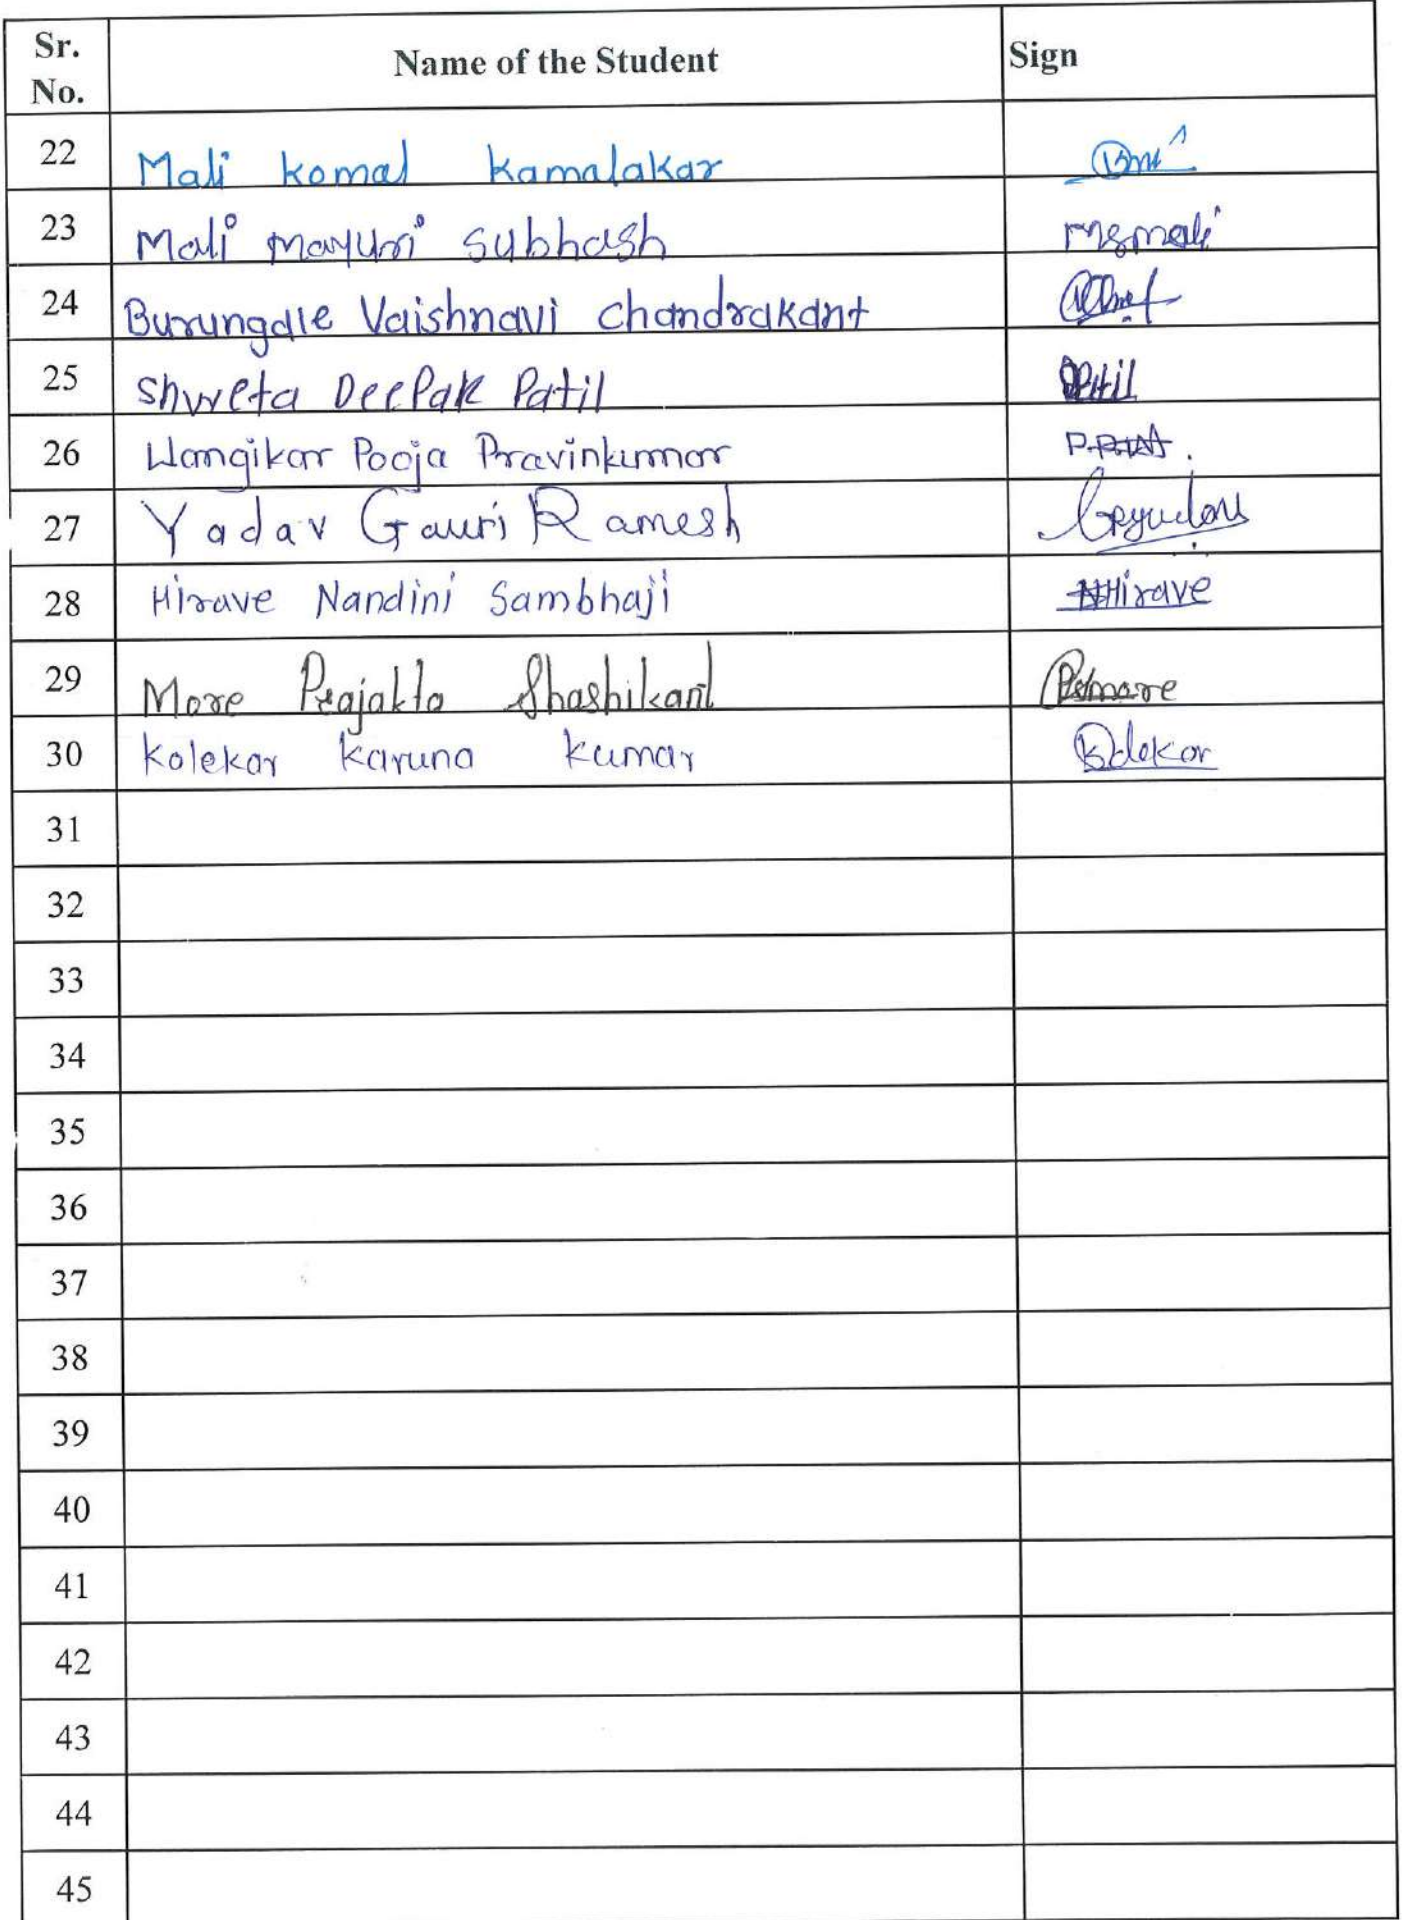 Sr. No. Name of the Student Sign
22 Mali komal kamalakar
23 Mali mayuri subhash msmali
24 Burungale Vaishnavi chandrakant
25 Shweta Deepak Patil Patil
26 Wangikar Pooja Pravinkumar
27 Yadav Gauri Ramesh
28 Hirave Nandini Sambhaji NHirave
29 More Prajakta Shashikant Psmore
30 kolekar karuna kumar kolekar
31
32
33
34
35
36
37
38
39
40
41
42
43
44
45